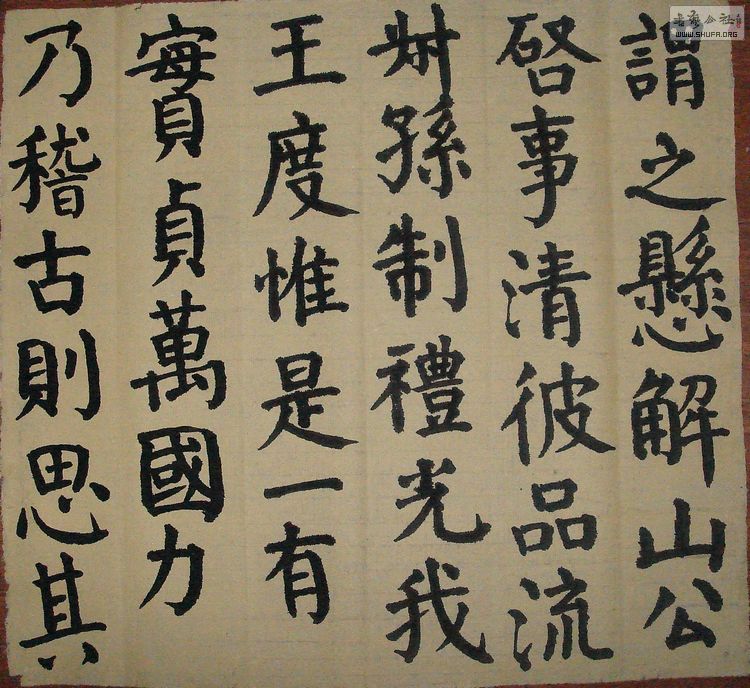 謂之懸解山公
啓事清彼品流
叔孫制禮光我
王度惟是一有
實貞萬國力
乃稽古則思其
书艺公社
WWW.SHUFA.ORG